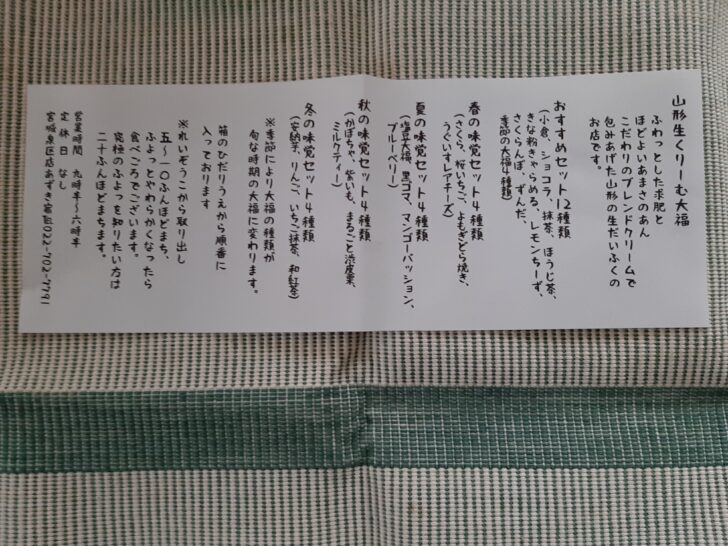 山形生くりーむ大福
ふわっとした求肥と
ほどよいあまさのあん
こだわりのブレンドクリームで
包みあげた山形の生だいふくの
お店です。
おすすめセット12種類
(小倉、ショコラ、抹茶、ほうじ茶、
きな粉きゃらめる、レモンちーず、
さくらんぼ、ずんだ、
季節の大福4種類)
春の味覚セット4種類
(さくら、桜いちご、よもぎどら焼き、
うぐいすレアチーズ)
夏の味覚セット4種類
(塩豆大福、黒ゴマ、マンゴーパッション、
ブルーベリー)
秋の味覚セット4種類
(かぼちゃ、紫いも、まるごと渋皮栗、
ミルクティ)
冬の味覚セット4種類
(安納芋、りんご、いちご抹茶、和紅茶)
※季節により大福の種類が
旬な時期の大福に変わります。
箱のひだりうえから順番に
入っております
※れいぞうこから取り出し
五~一〇ふんほどまち、
ふよっとやわらかくなったら
食べごろでございます。
究極のふよっを知りたい方は
二十ふんほどまちます。
営業時間 九時半~六時半
定休日 なし
宮城泉区店あずき家℡022-702-7791